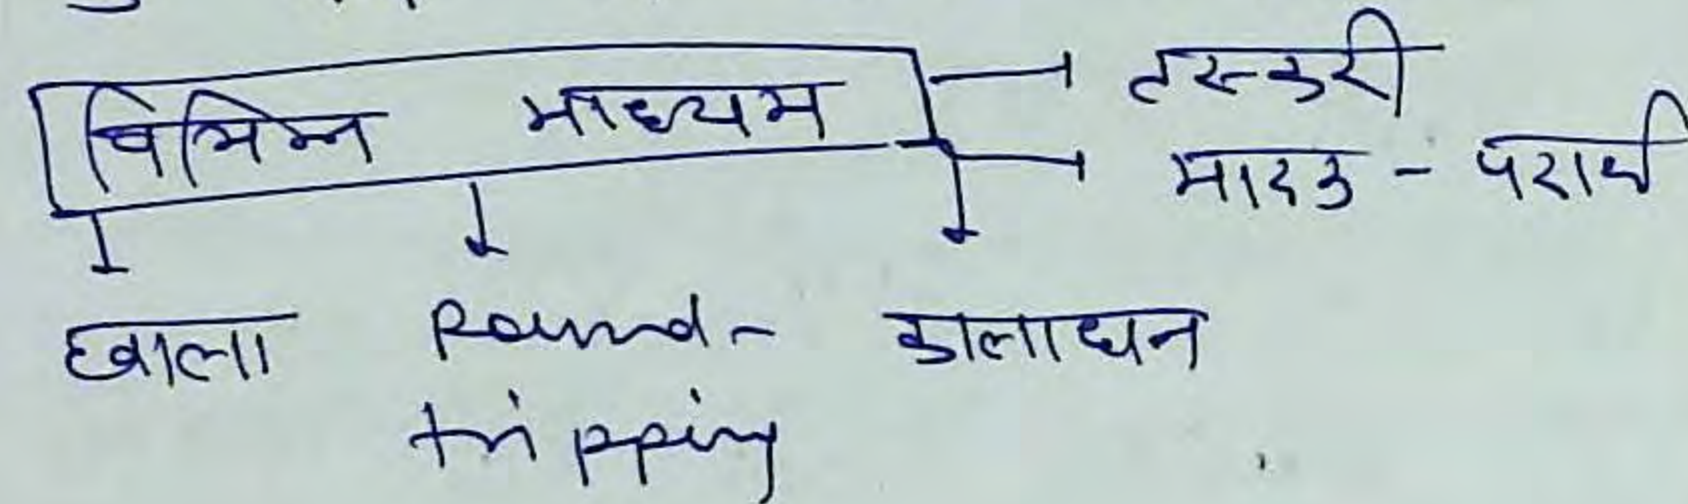 विभिन्न माध्यम
तस्करी
मादक - पदार्थ
Round-
tripping
कालाधन